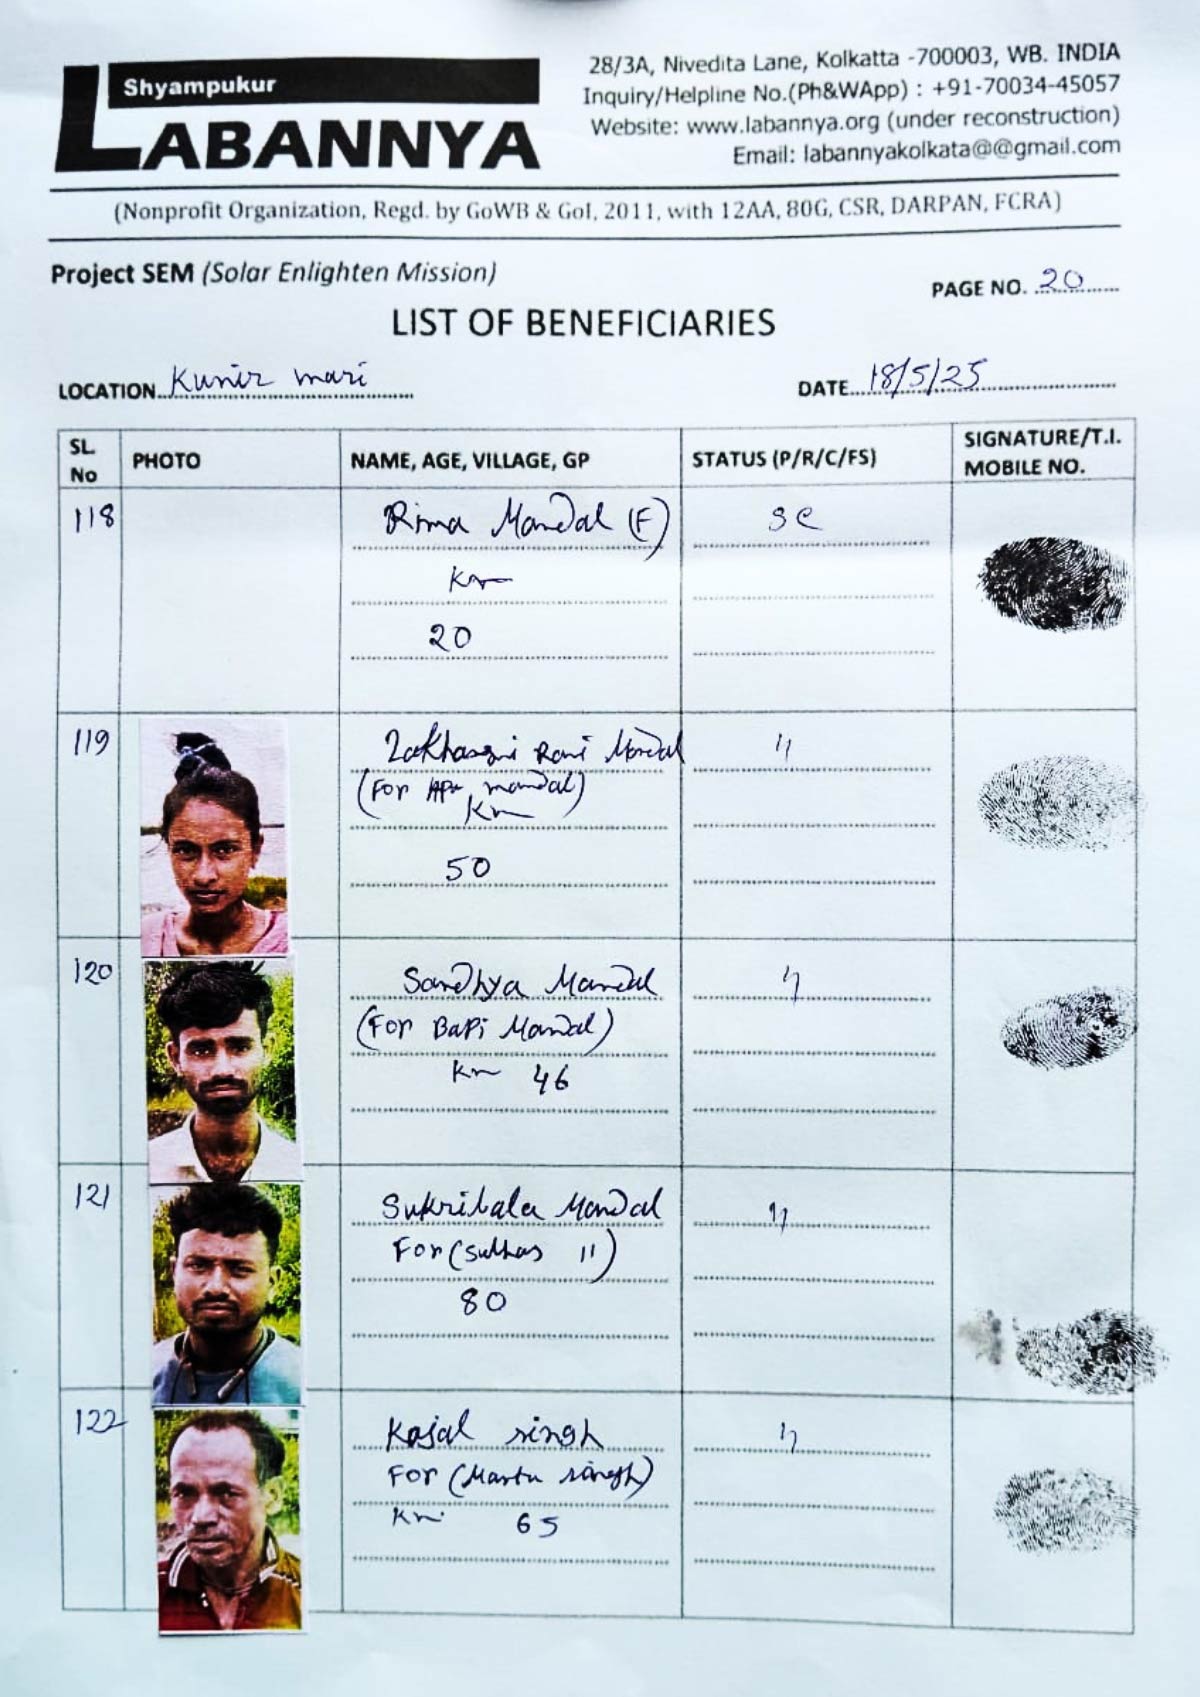 Shyampukur
LABANNYA
28/3A, Nivedita Lane, Kolkatta -700003, WB. INDIA
Inquiry/Helpline No.(Ph&WApp) : +91-70034-45057
Website: www.labannya.org (under reconstruction)
Email: labannyakolkata@@gmail.com
(Nonprofit Organization, Regd. by GoWB & GoI, 2011, with 12AA, 80G, CSR, DARPAN, FCRA)
Project SEM (Solar Enlighten Mission)
PAGE NO. 20
LIST OF BENEFICIARIES
LOCATION Kumir mari
DATE 18/5/25
SL. No PHOTO NAME, AGE, VILLAGE, GP STATUS (P/R/C/FS) SIGNATURE/T.I. MOBILE NO.
118 Rima Mandal (F) SC
Km
20
119 Rani Mondal "
(For mandal)
Km
50
120 Sandhya Mandal "
(For Bapi Mandal)
Km 46
121 Sukribala Mondal "
For (Suthas 11)
80
122 Kajal Singh "
For (Mantu Singh)
Km 65